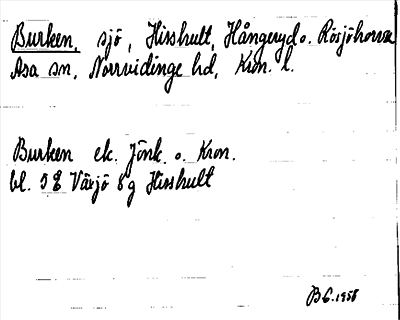 Burken, sjö, Hisshult, Hångeryd o. Rösjöhorva
Asa sn, Norrvidinge hd, Kron. l.
Burken ek. Jönk. o. Kron.
bl. 5E Växjö 8g Hisshult
B.G. 1958